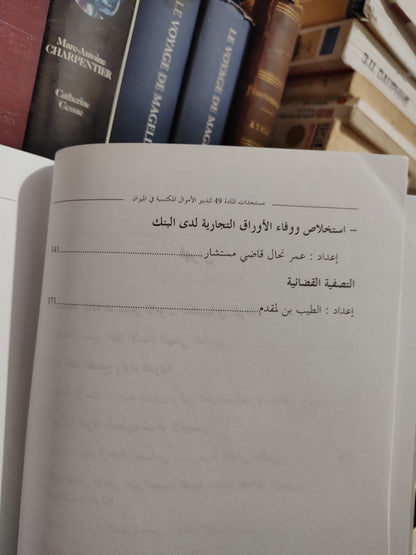 Marc-Antoine
CHARPENTIER
Catherine
Cessac
LE VOYAGE DE MAGEL
LE VOYAGE DE MAG
مستجدات المادة 49 لتدبير الأموال المكتسبة في الميزان
– استخلاص ووفاء الأوراق التجارية لدى البنك
إعداد : عمر نحال قاضي مستشار..........................................141
التصفية القضائية
إعداد : الطيب بن لمقدم..........................................171